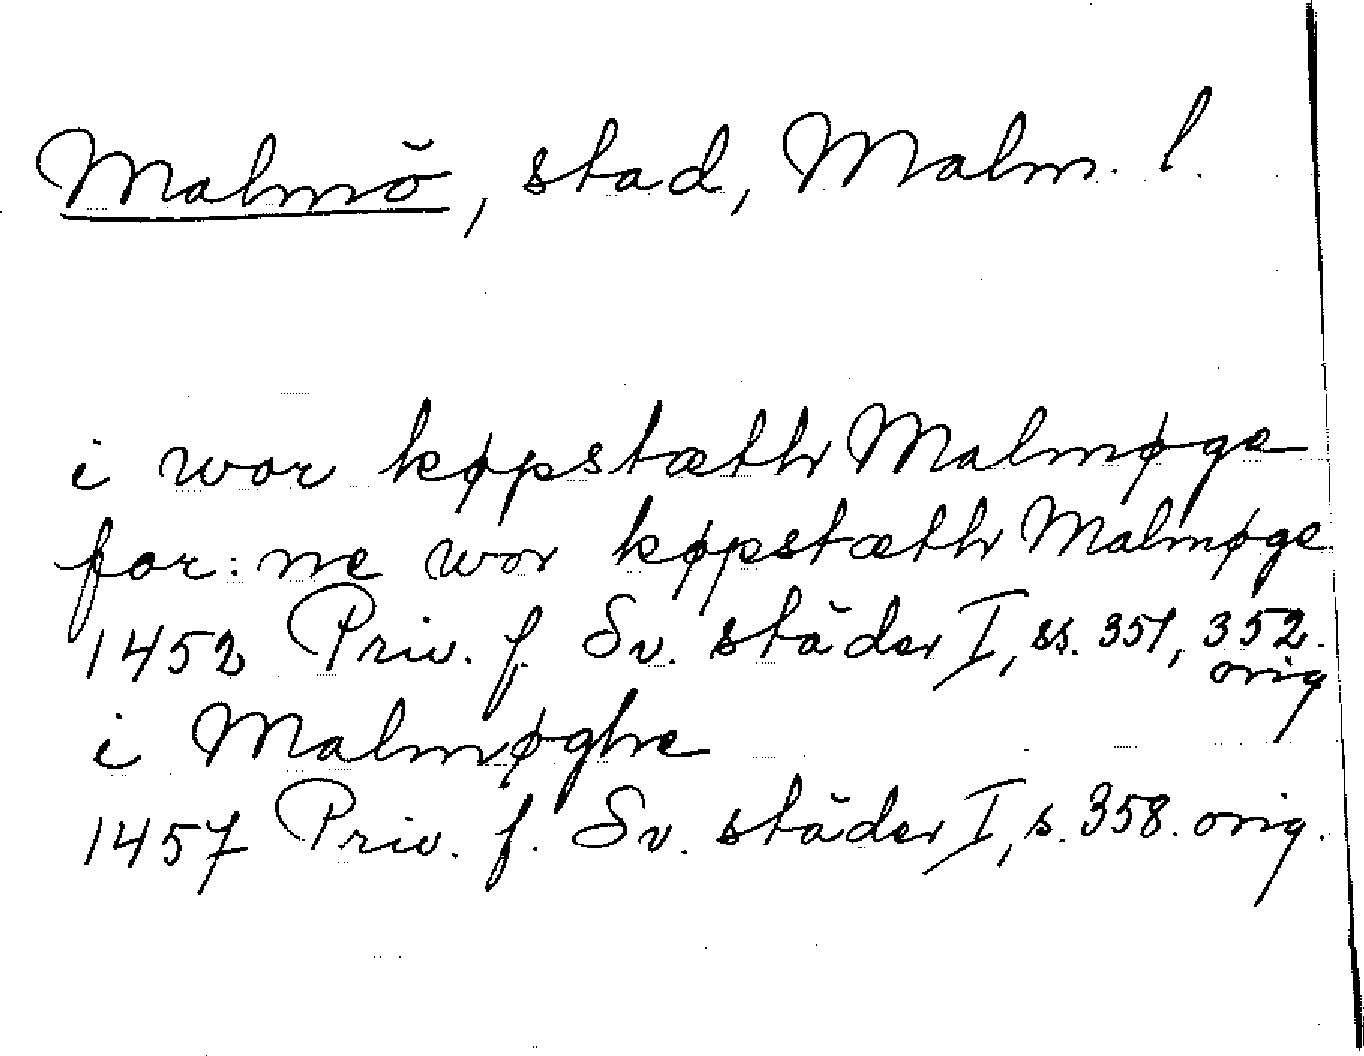 Malmö, stad, Malm. l.
i wor køpstæth Malmøge
for: ne wor køpstæth Malmøge
1452 Priv. f. Sv. städer I, ss. 351, 352.
orig
i Malmøghe
1457 Priv. f. Sv. städer I, s. 358. orig.